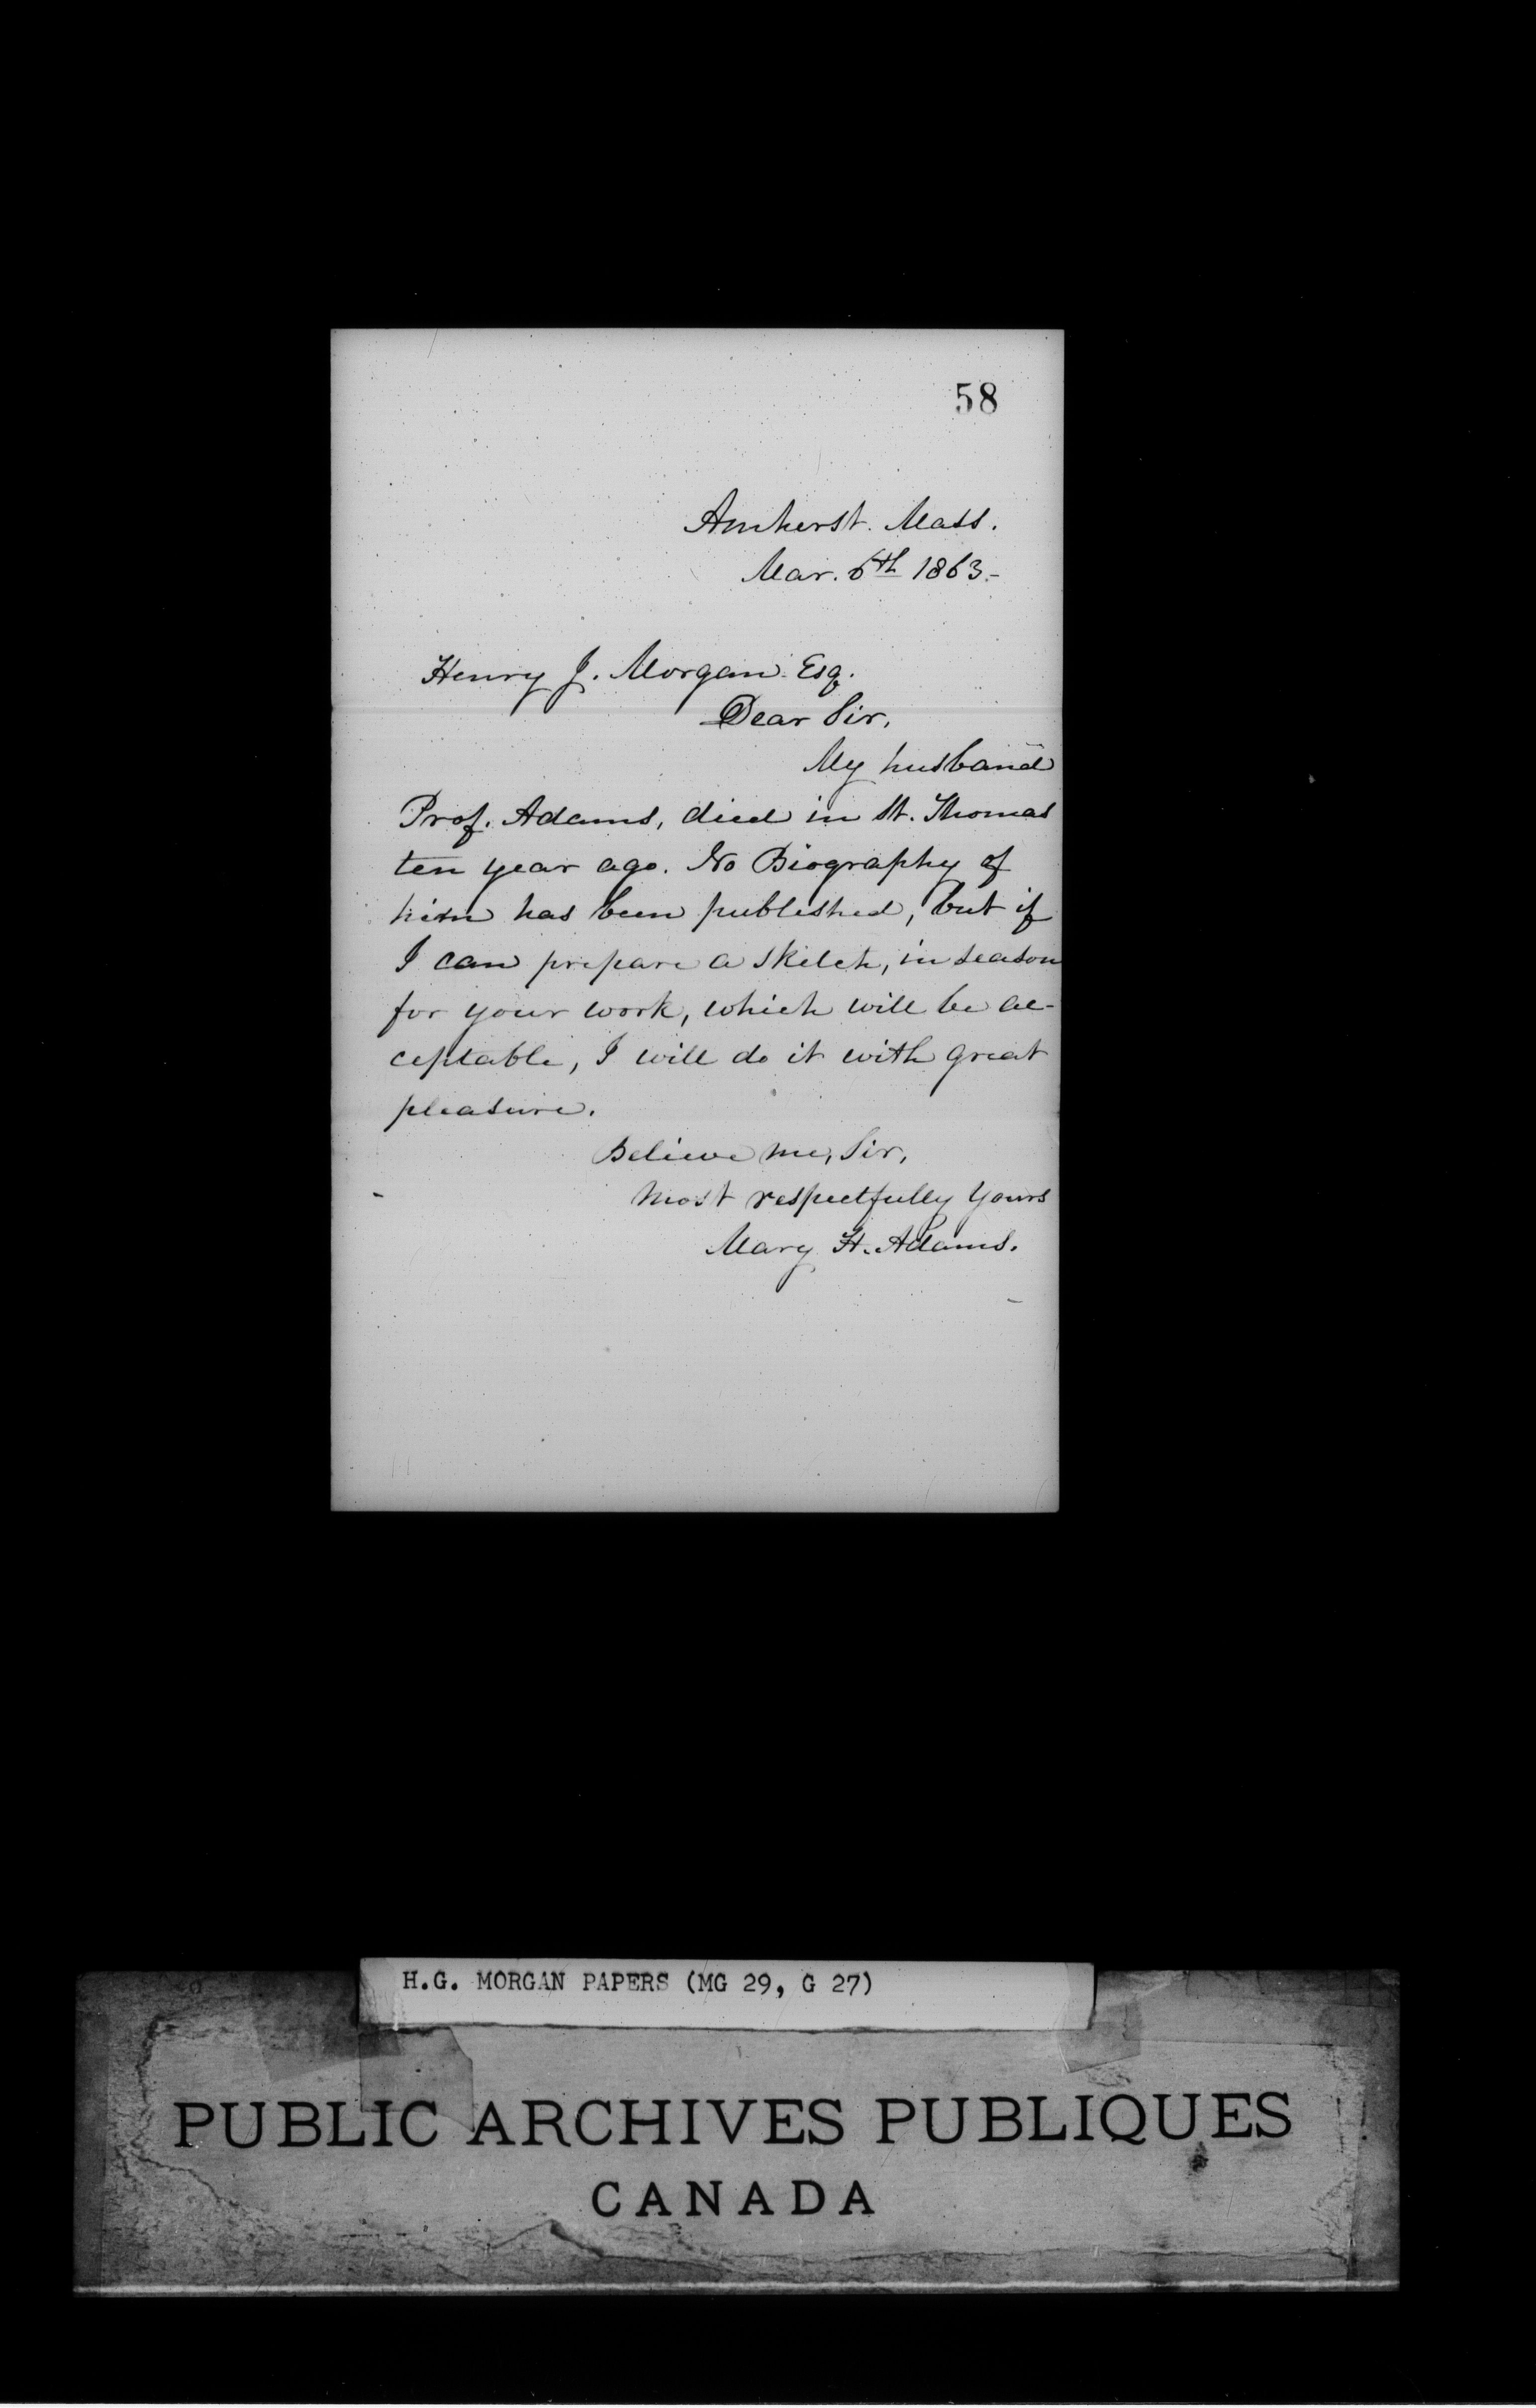 58
Amherst. Mass.
Mar. 6th 1863.-
Henry J. Morgan Esq.
Dear Sir,
My husband
Prof. Adams, died in St. Thomas
ten year ago. No Biography of
him has been published, but if
I can prepare a sketch, in season
for your work, which will be ac-
ceptable, I will do it with great
pleasure.
Believe me, Sir,
most respectfully yours
Mary H. Adams.
H.G. MORGAN PAPERS (MG 29, G 27)
PUBLIC ARCHIVES PUBLIQUES
CANADA